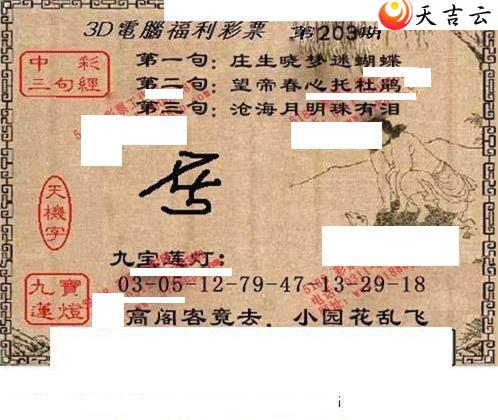 天吉云
3D電腦福利彩票 第203期
中彩
三句經
第一句：庄生晓梦迷蝴蝶
第二句：望帝春心托杜鹃
第三句：沧海月明珠有泪
天機字
九宝莲灯：
九寶
蓮燈
03-05-12-79-47 13-29-18
高阁客竟去，小园花乱飞